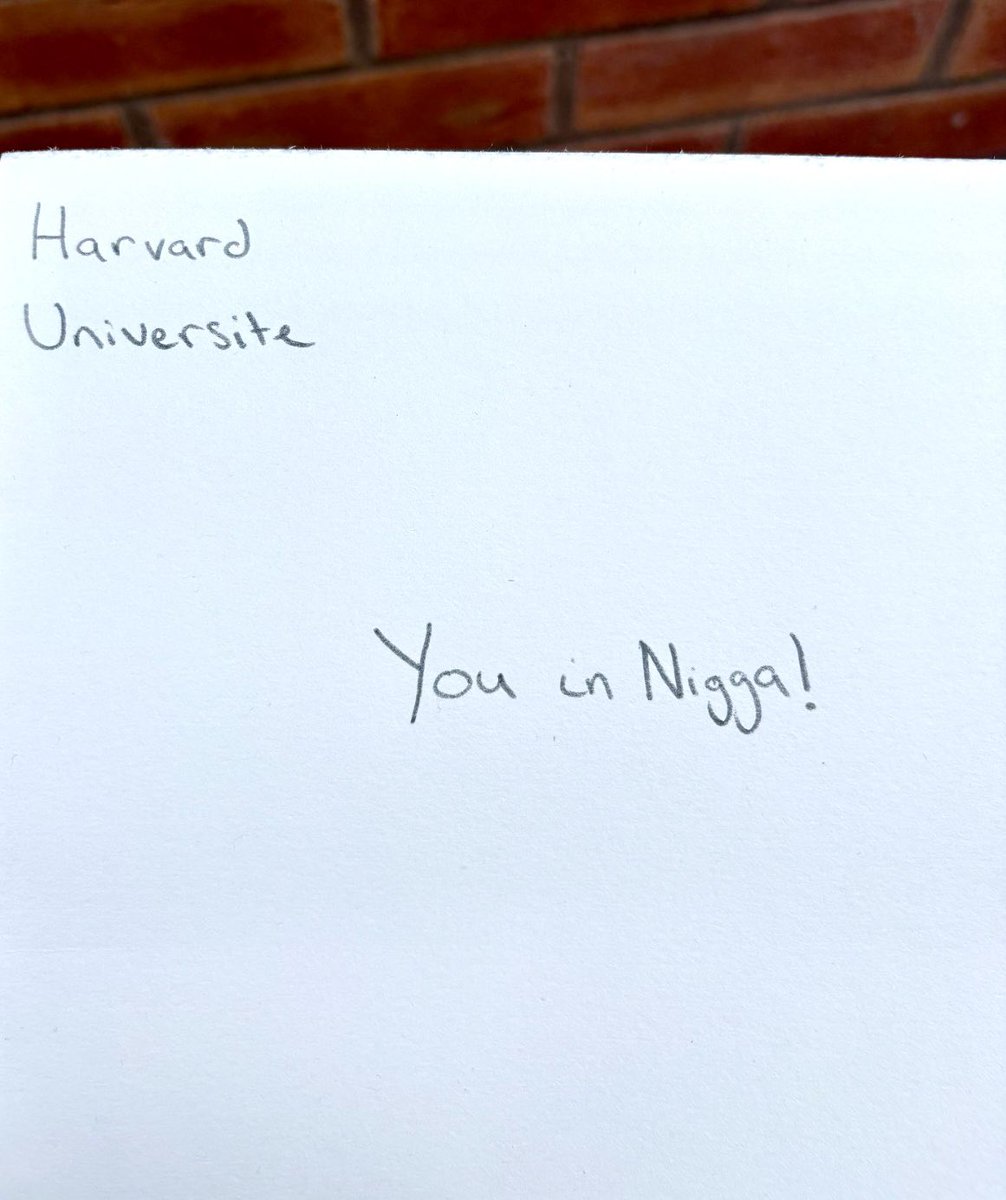 Harvard
Universite
You in Nigga!